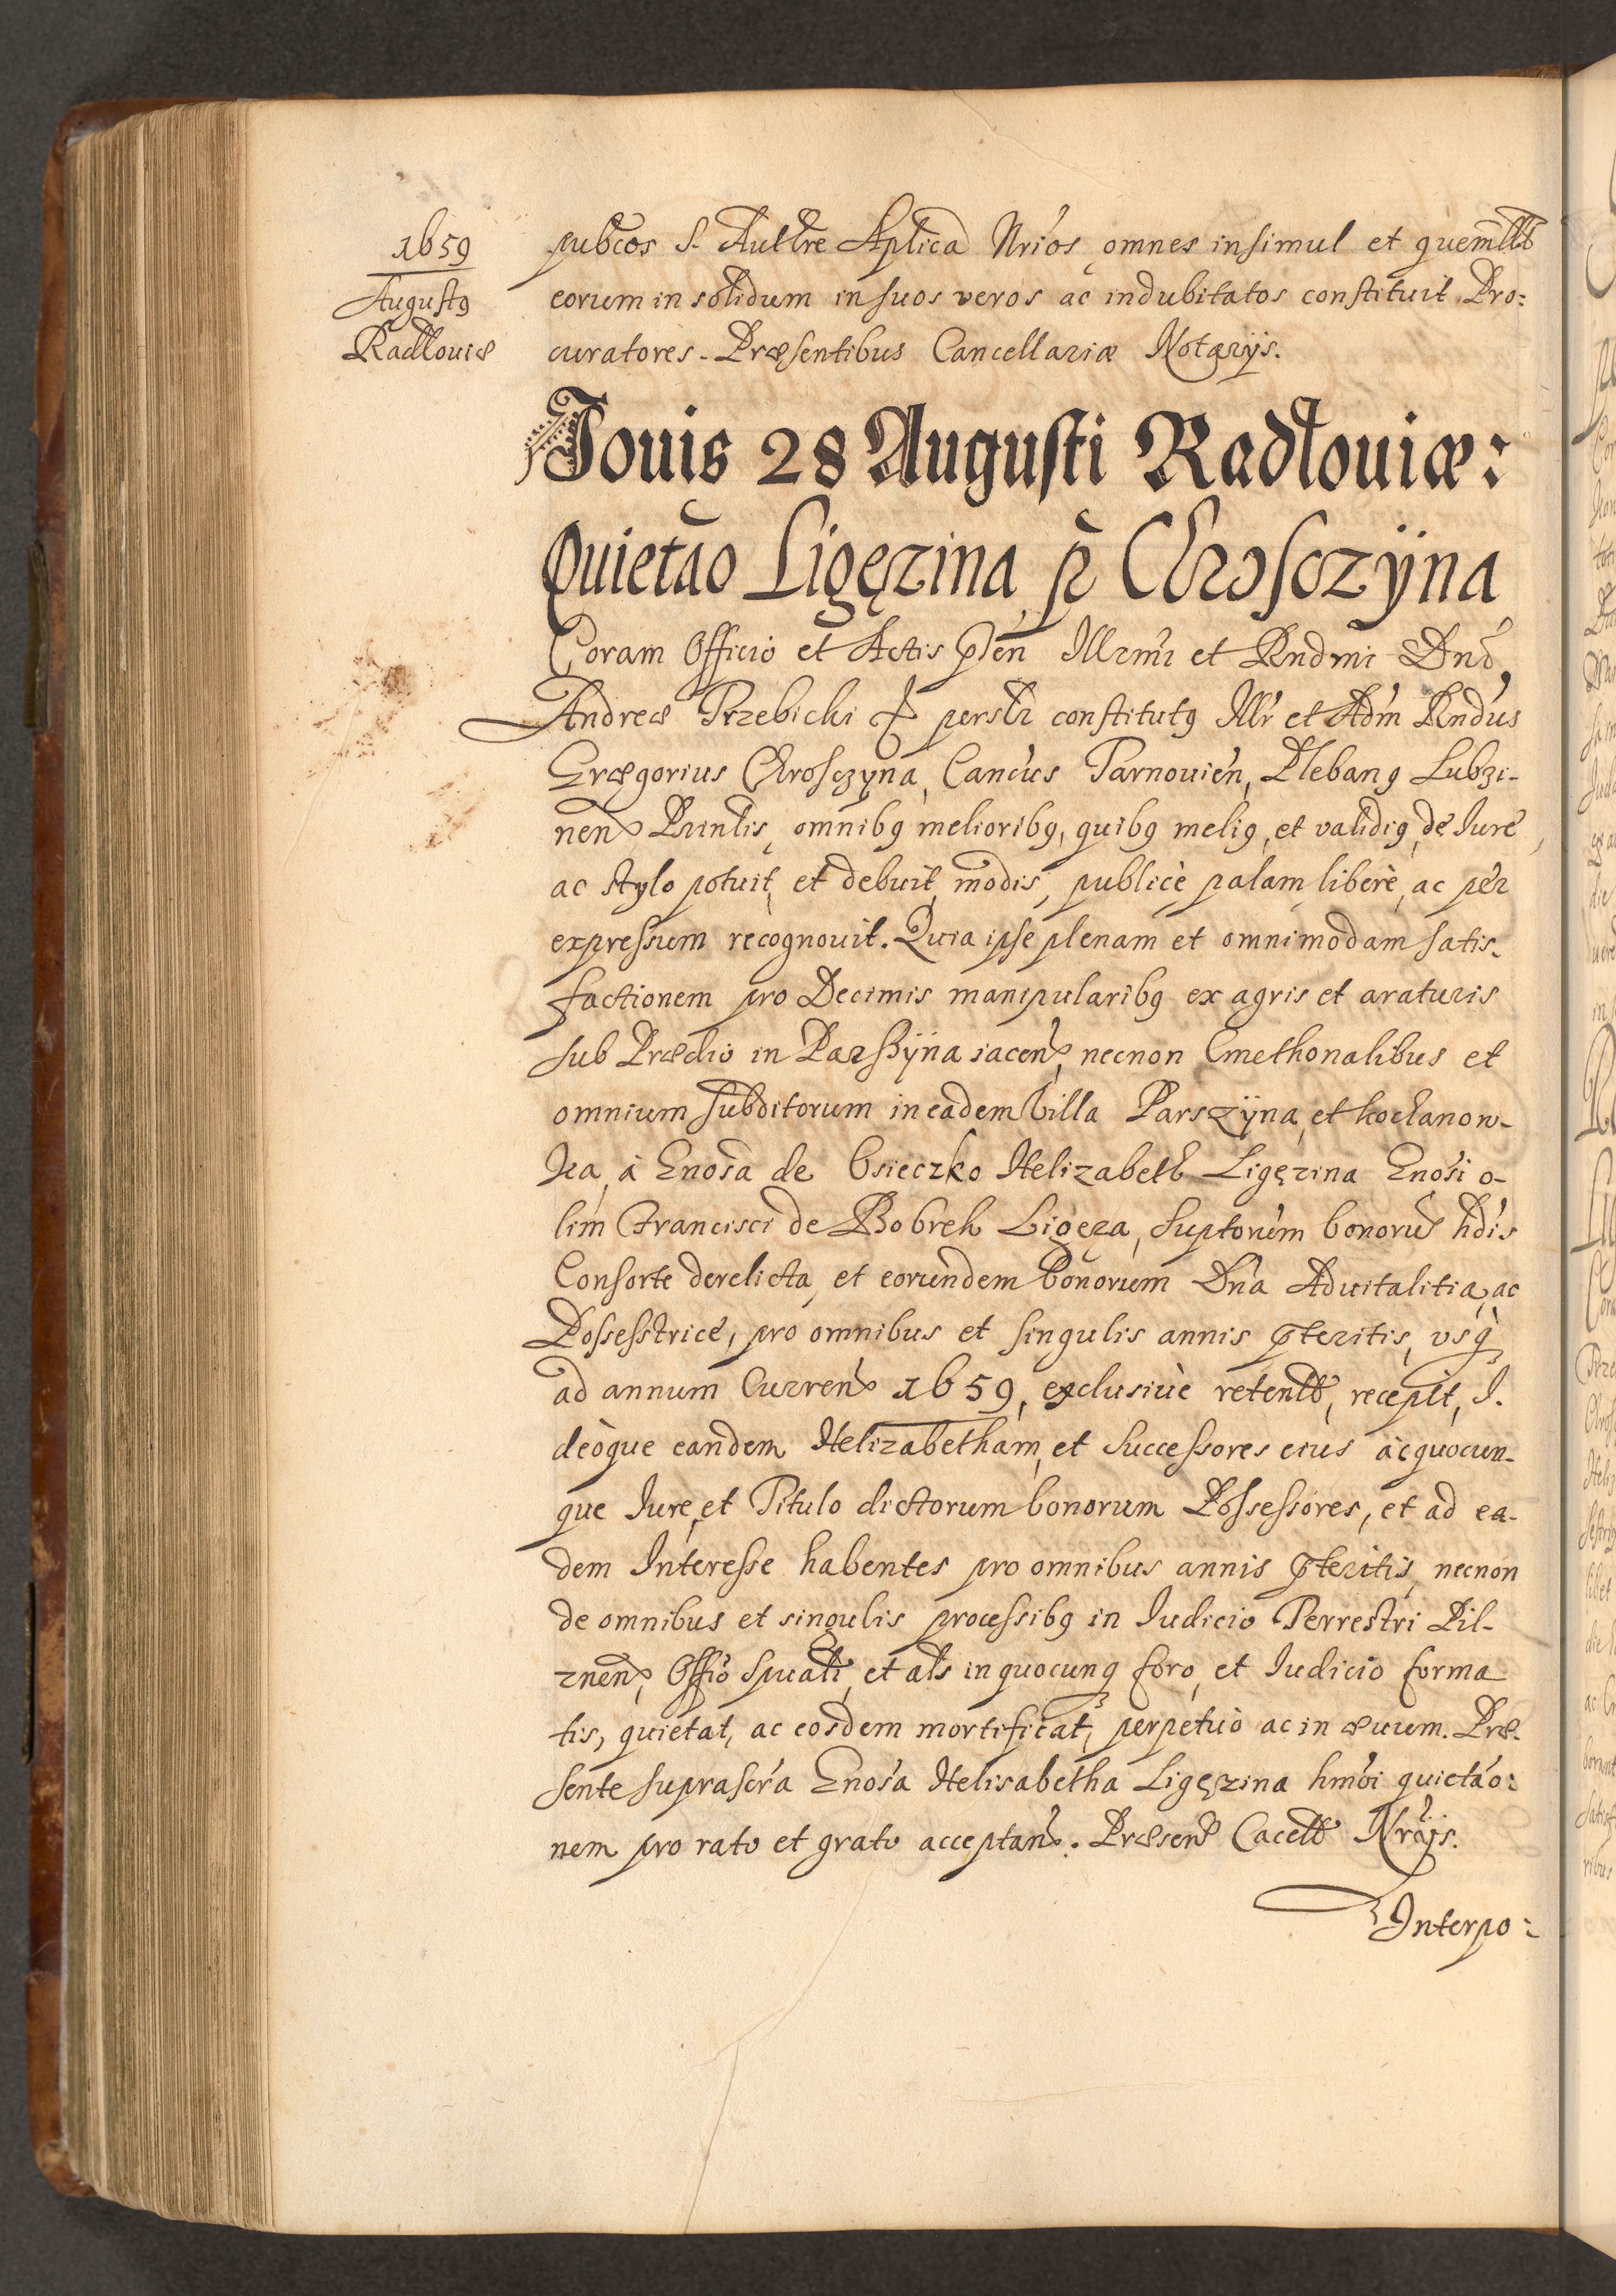 1659
Augustꝰ
Radłouiæ
pubcos S. Aucttre Aplica Nrios, omnes insimul et quemlłt
eorum in solidum in suos veros ac indubitatos constituit Pro:
curatores. Præsentibus Cancellariæ Notarijs.
Jouis 28 Augusti Radłouiæ:
Quietāo Ligęzina, p Chrosczÿna
Coram Officio et Actis Pden Illrmi et Rndmi Dni,
Andreæ Trzebicki personlr constitutꝰ Illr et Adm Rndus
Græegorius Chrosczyna, Cancus Tarnouien, Plebanꝰ Lubzi-
nen Prinlis, omnibꝰ melioribꝰ, quibꝰ meliꝰ, et validiꝰ, de Iure
ac stylo potuit, et debuit, modis, publicè palam, liberè, ac per
expressum recognouit. Quia ipse plenam et omnimodam satis-
factionem pro Decimis manipularibꝰ ex agris et araturis
sub Prædio in Parszÿna iacen, necnon Cmethonalibus et
omnium subditorum in eadem Villa Parszÿna, et kochanow-
ka, à Gnosa de Osieczko Helizabeth Ligęzina Gnosi o-
lim Francisci de Bobrek Ligęza, suptorum bonorum hdis
Consorte derelicta, et eorundem bonorum Dna Aduitalitia, ac
Possesstrice, pro omnibus et singulis annis pteritis, vsq
ad annum Curren 1659, exclusiuè retent, recepit, I.
deòque eandem Helizabetham, et Successores eius ac quocun-
que Iure, et Titulo dictorum bonorum Possessores, et ad ea-
dem Interesse habentes pro omnibus annis pteritis, necnon
de omnibus et singulis processibꝰ in Iudicio Terrestri Pil-
znen, Offio Spuali, et als in quocunq foro, et Iudicio forma
tis, quietat, ac eosdem mortificat, perpetuò ac in æuum. Præ-
sente suprascra Gnosa Helisabetha Ligęzina hmoi quietāo:
nem pro rato et grato acceptan. Præsen Cacell Nrijs.
Interpo: